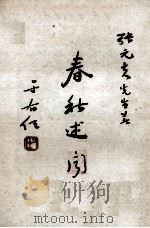 張元夫先生著
春秋述聞
于右任
mtoou.info